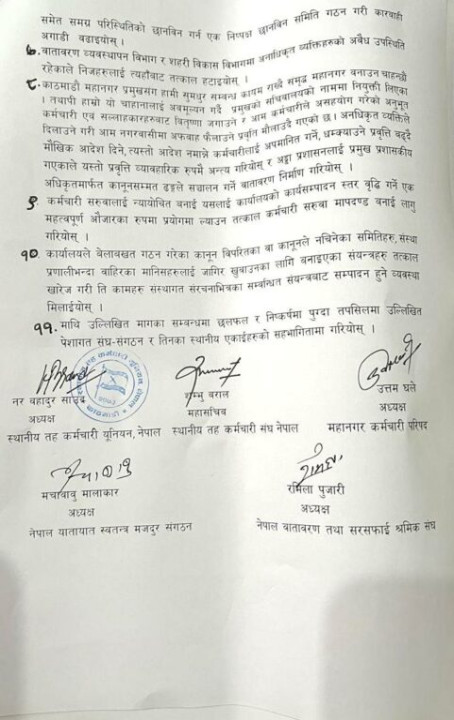 समेत समग्र परिस्थितिको छानविन गर्न एक निष्पक्ष छानविन समिति गठन गरी कारवाही
अगाडी बढाइयोस् ।
७. वातावरण व्यवस्थापन विभाग र शहरी विकास विभागमा अनाधिकृत व्यक्तिहरुको अवैध उपस्थिति
रहेकाले निजहरुलाई त्यहाँबाट तत्काल हटाइयोस् ।
८. काठमाडौं महानगर प्रमुखसंग हामी सुमधुर सम्बन्ध कायम राख्दै समृद्ध महानगर बनाउन चाहन्छौं
। तथापी हाम्रो यो चाहानालाई अवमूल्यन गर्दै प्रमुखको सचिवालयको नाममा नियुक्ती लिएका
कर्मचारी एवं सल्लाहकारहरुबाट वितृष्णा जगाउने र आम कर्मचारीले असहयोग गरेको अनुभूत
दिलाउने गरी आम नगरवासीमा अफवाह फैलाउने प्रवृति मौलाउदै गएको छ। अनधिकृत व्यक्तिले
मौखिक आदेश दिने, त्यस्तो आदेश नमान्ने कर्मचारीलाई अपमानित गर्ने, धम्क्याउने प्रवृत्ति बढ्दै
गएकाले यस्तो प्रवृत्ति व्यावहारिक रुपमै अन्त्य गरियोस् र अड्डा प्रशासनलाई प्रमुख प्रशासकीय
अधिकृतमार्फत कानूनसम्मत ढङ्गले संचालन गर्ने वातावरण निर्माण गरियोस् ।
९. कर्मचारी सरुवालाई न्यायोचित बनाई यसलाई कार्यालयको कार्यसम्पादन स्तर वृद्धि गर्ने एक
महत्वपूर्ण औजारका रुपमा प्रयोगमा ल्याउन तत्काल कर्मचारी सरुवा मापदण्ड बनाई लागु
गरियोस् ।
१०. कार्यालयले बेलाबखत गठन गरेका कानून विपरितका वा कानूनले नचिनेका समितिहरु, संस्था
प्रणालीभन्दा वाहिरका मानिसहरुलाई जागिर खुवाउनका लागि बनाइएका संयन्त्रहरु तत्काल
खारेज गरी ति कामहरु संस्थागत संरचनाभित्रका सम्बन्धित संयन्त्रबाट सम्पादन हुने व्यवस्था
मिलाईयोस् ।
११. माथि उल्लिखित मागका सम्बन्धमा छलफल र निष्कर्षमा पुग्दा तपसिलमा उल्लिखित
पेशागत संघ-संगठन र तिनका स्थानीय एकाईहरुको सहभागितामा गरियोस् ।
नर बहादुर साउद शम्भु बराल उत्तम घले
अध्यक्ष महासचिव अध्यक्ष
स्थानीय तह कर्मचारी यूनियन, नेपाल स्थानीय तह कर्मचारी संघ नेपाल महानगर कर्मचारी परिषद
मचाबाबु मालाकार रमिला पुजारी
अध्यक्ष अध्यक्ष
नेपाल यातायात स्वतन्त्र मजदुर संगठन नेपाल वातावरण तथा सरसफाई श्रमिक संघ